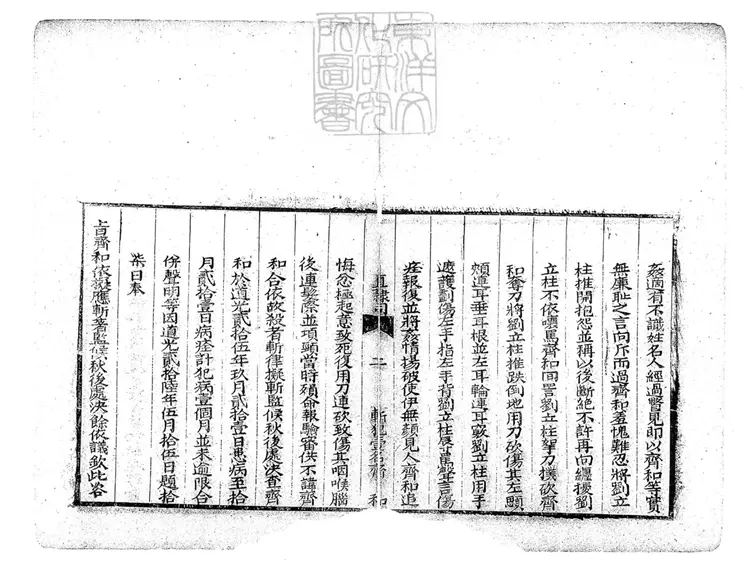 東洋文
化研究
圖書
姦適有不識姓名人經過瞥見即以齊和等實
無廉耻之言向斥而過齊和羞愧難忍將劉立
柱推開抱怨並稱以後斷絶不許再向纏擾劉
立柱不依嚷罵齊和回詈劉立柱拏刀撲砍齊
和奪刀將劉立柱推跌倒地用刀砍傷其左頤
頰連耳垂耳根並左耳輪連耳竅劉立柱用手
遮護劃傷左手指左手背劉立柱辱罵聲言傷
痊報復並將姦情揚破使伊無顔見人齊和追
直隸司 二 斬犯壹名齊 和
悔忿極起意致死復用刀連砍致傷其咽喉腦
後連髮際並項頸當時殞命報驗審供不諱齊
和合依故殺者斬律擬斬監候秋後處決查齊
和於道光貳拾伍年玖月貳拾壹日患病至拾
月貳拾壹日病痊計犯病壹個月並未逾限合
併聲明等因道光貳拾陸年伍月拾伍日題拾
柒日奉
旨齊和依擬應斬著監候秋後處決餘依議欽此咨